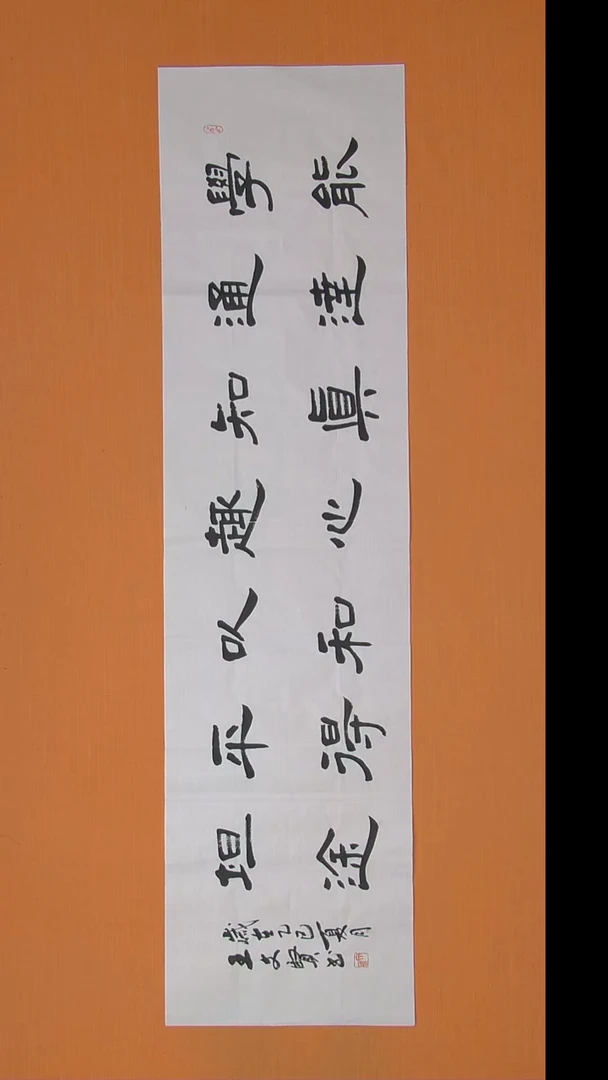 學能
通達
知眞
趣心
以和
平得
坦途
歲在乙巳夏月
王文賢書